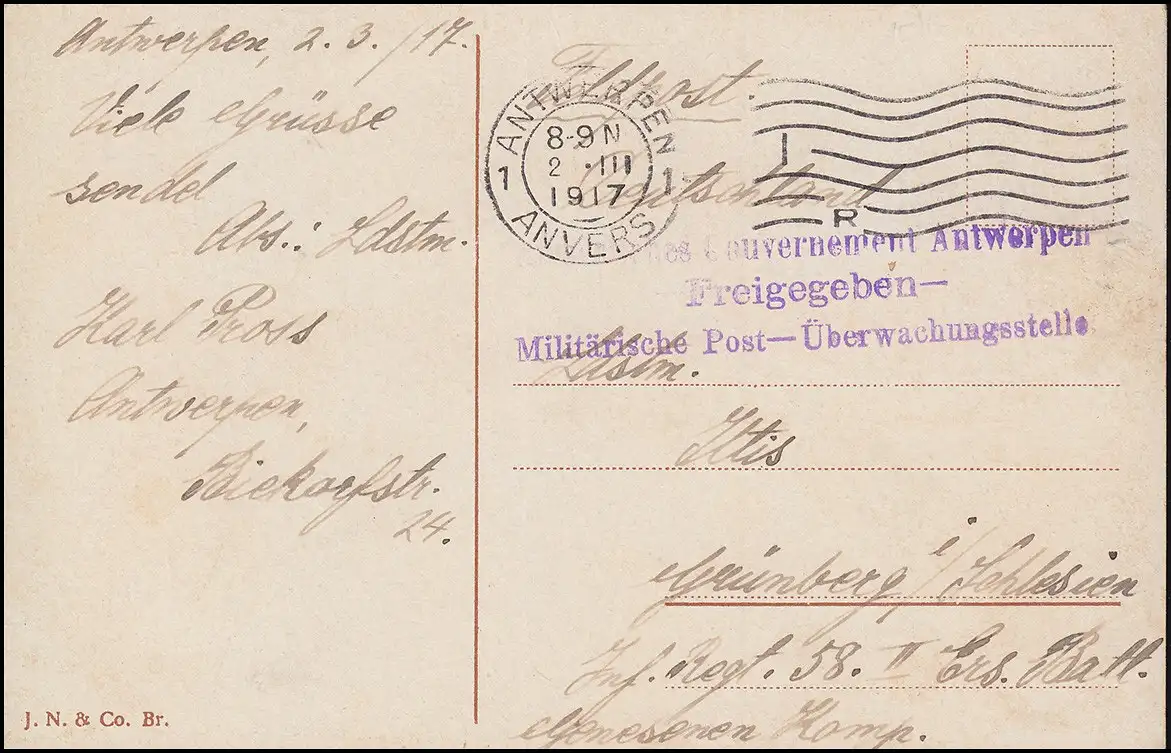 Antwerpen, 2. 3. /17.
Viele Grüsse
sendet
Abs.: Ldstm.
Karl Pross
Antwerpen,
Biekorfstr.
24.
J. N. & Co. Br.
Feldpost.
ANTWERPEN
1 1
8-9 N
2 .III
1917
ANVERS
I
R
Deutschland
Gouvernement Antwerpen
—Freigegeben—
Militärische Post—Überwachungsstelle
Ldstm.
Iltis
Grünberg i/Schlesien
Inf. Regt. 58. II Ers. Batl.
Genesenen Komp.